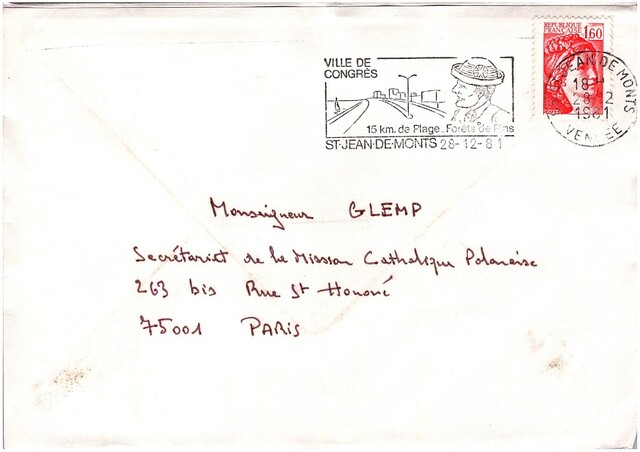 REPUBLIQUE
FRANÇAISE 1,60
VILLE DE
CONGRÈS
15 km. de Plage. Forêts de Pins
ST-JEAN-DE-MONTS 28-12-81
ST JEAN DE MONTS
18H
28-12
1981
VENDEE
Monseigneur GLEMP
Secrétariat de la Mission Catholique Polonaise
263 bis Rue St Honoré
75001 PARIS